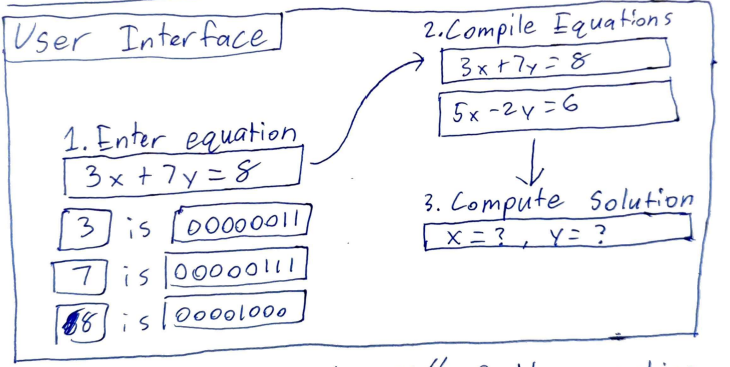 User Interface
1. Enter equation
3x + 7y = 8
3 is 00000011
7 is 00000111
8 is 00001000
2. Compile Equations
3x + 7y = 8
5x - 2y = 6
3. Compute Solution
x = ? , y = ?